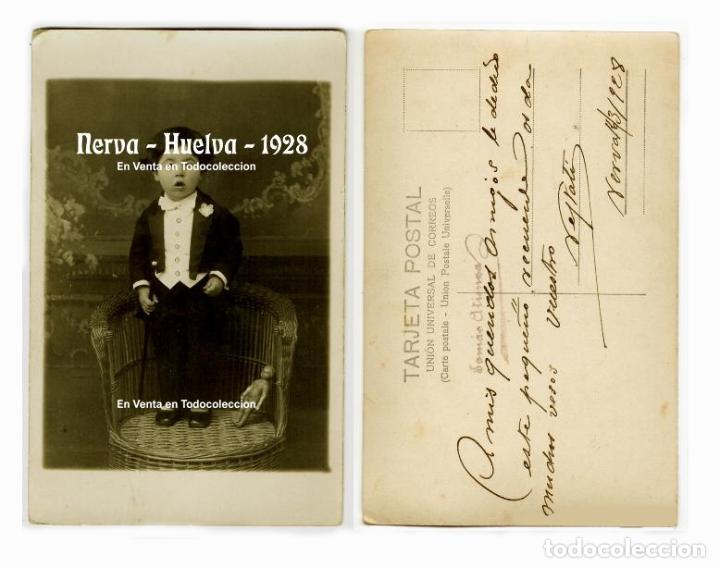 Nerva - Huelva - 1928
En Venta en Todocoleccion
En Venta en Todocoleccion
TARJETA POSTAL
UNIÓN UNIVERSAL DE CORREOS
(Carte postale - Union Postale Universelle)
A mis queridos Amigos le dedico
este pequeño recuerdo os da
muchos vesos vuestro
Nerva 3/1928
todocoleccion
todocoleccion.net